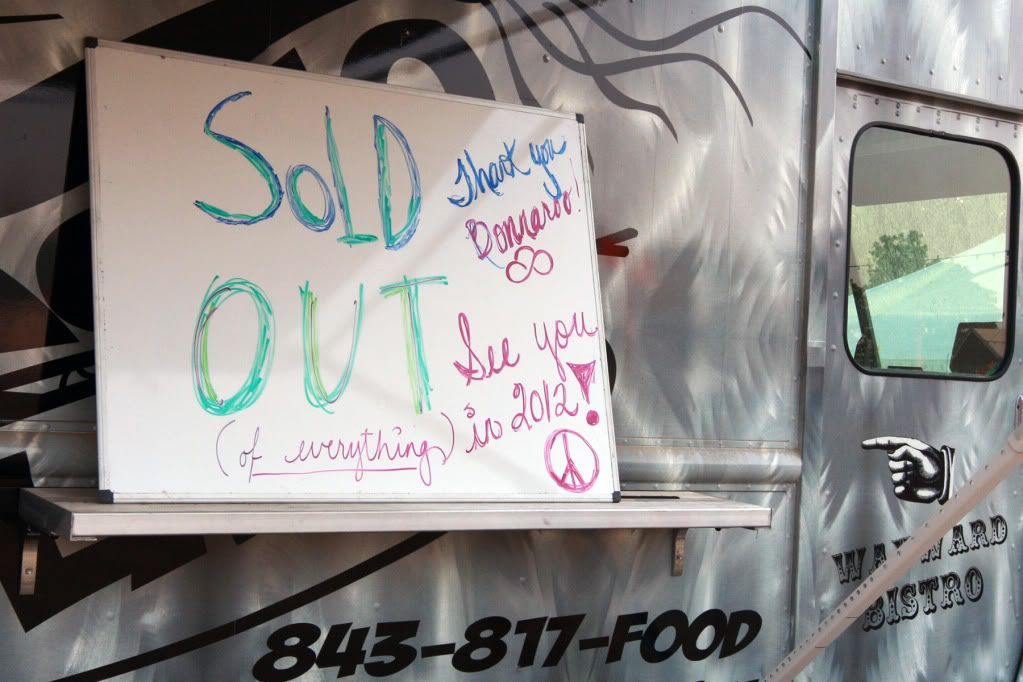 SolD
OUT
(of everything)
Thank you
Bonnaroo!
See you
in 2012!
WAYWARD
BISTRO
843-817-FOOD